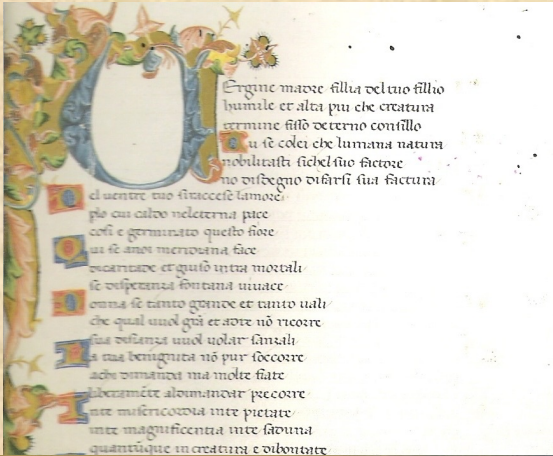 Ergine madre fillia del tuo fillio
humile et alta piu che creatura
termine fisso deterno consillo
u se colei che lumana natura
nobilitasti sichel suo factore
no disdegno difarsi sua factura
el ventre tuo siraccese lamore
plo cui caldo neleterna pace
cosi e germinato questo fiore
ui se anoi meridiana face
dicaritade et giuso intra mortali
se disperanza fontana vivace
onna se tanto grande et tanto vali
che qual vuol grã et adte nõ ricorre
sua disianza vuol volar sanzali
a tua benignita nõ pur soccorre
achi dimanda ma molte fiate
liberamẽte aldimandar precorre
nte misericordia inte pietate
inte magnificentia inte saduna
quantũque in creatura e dibontate